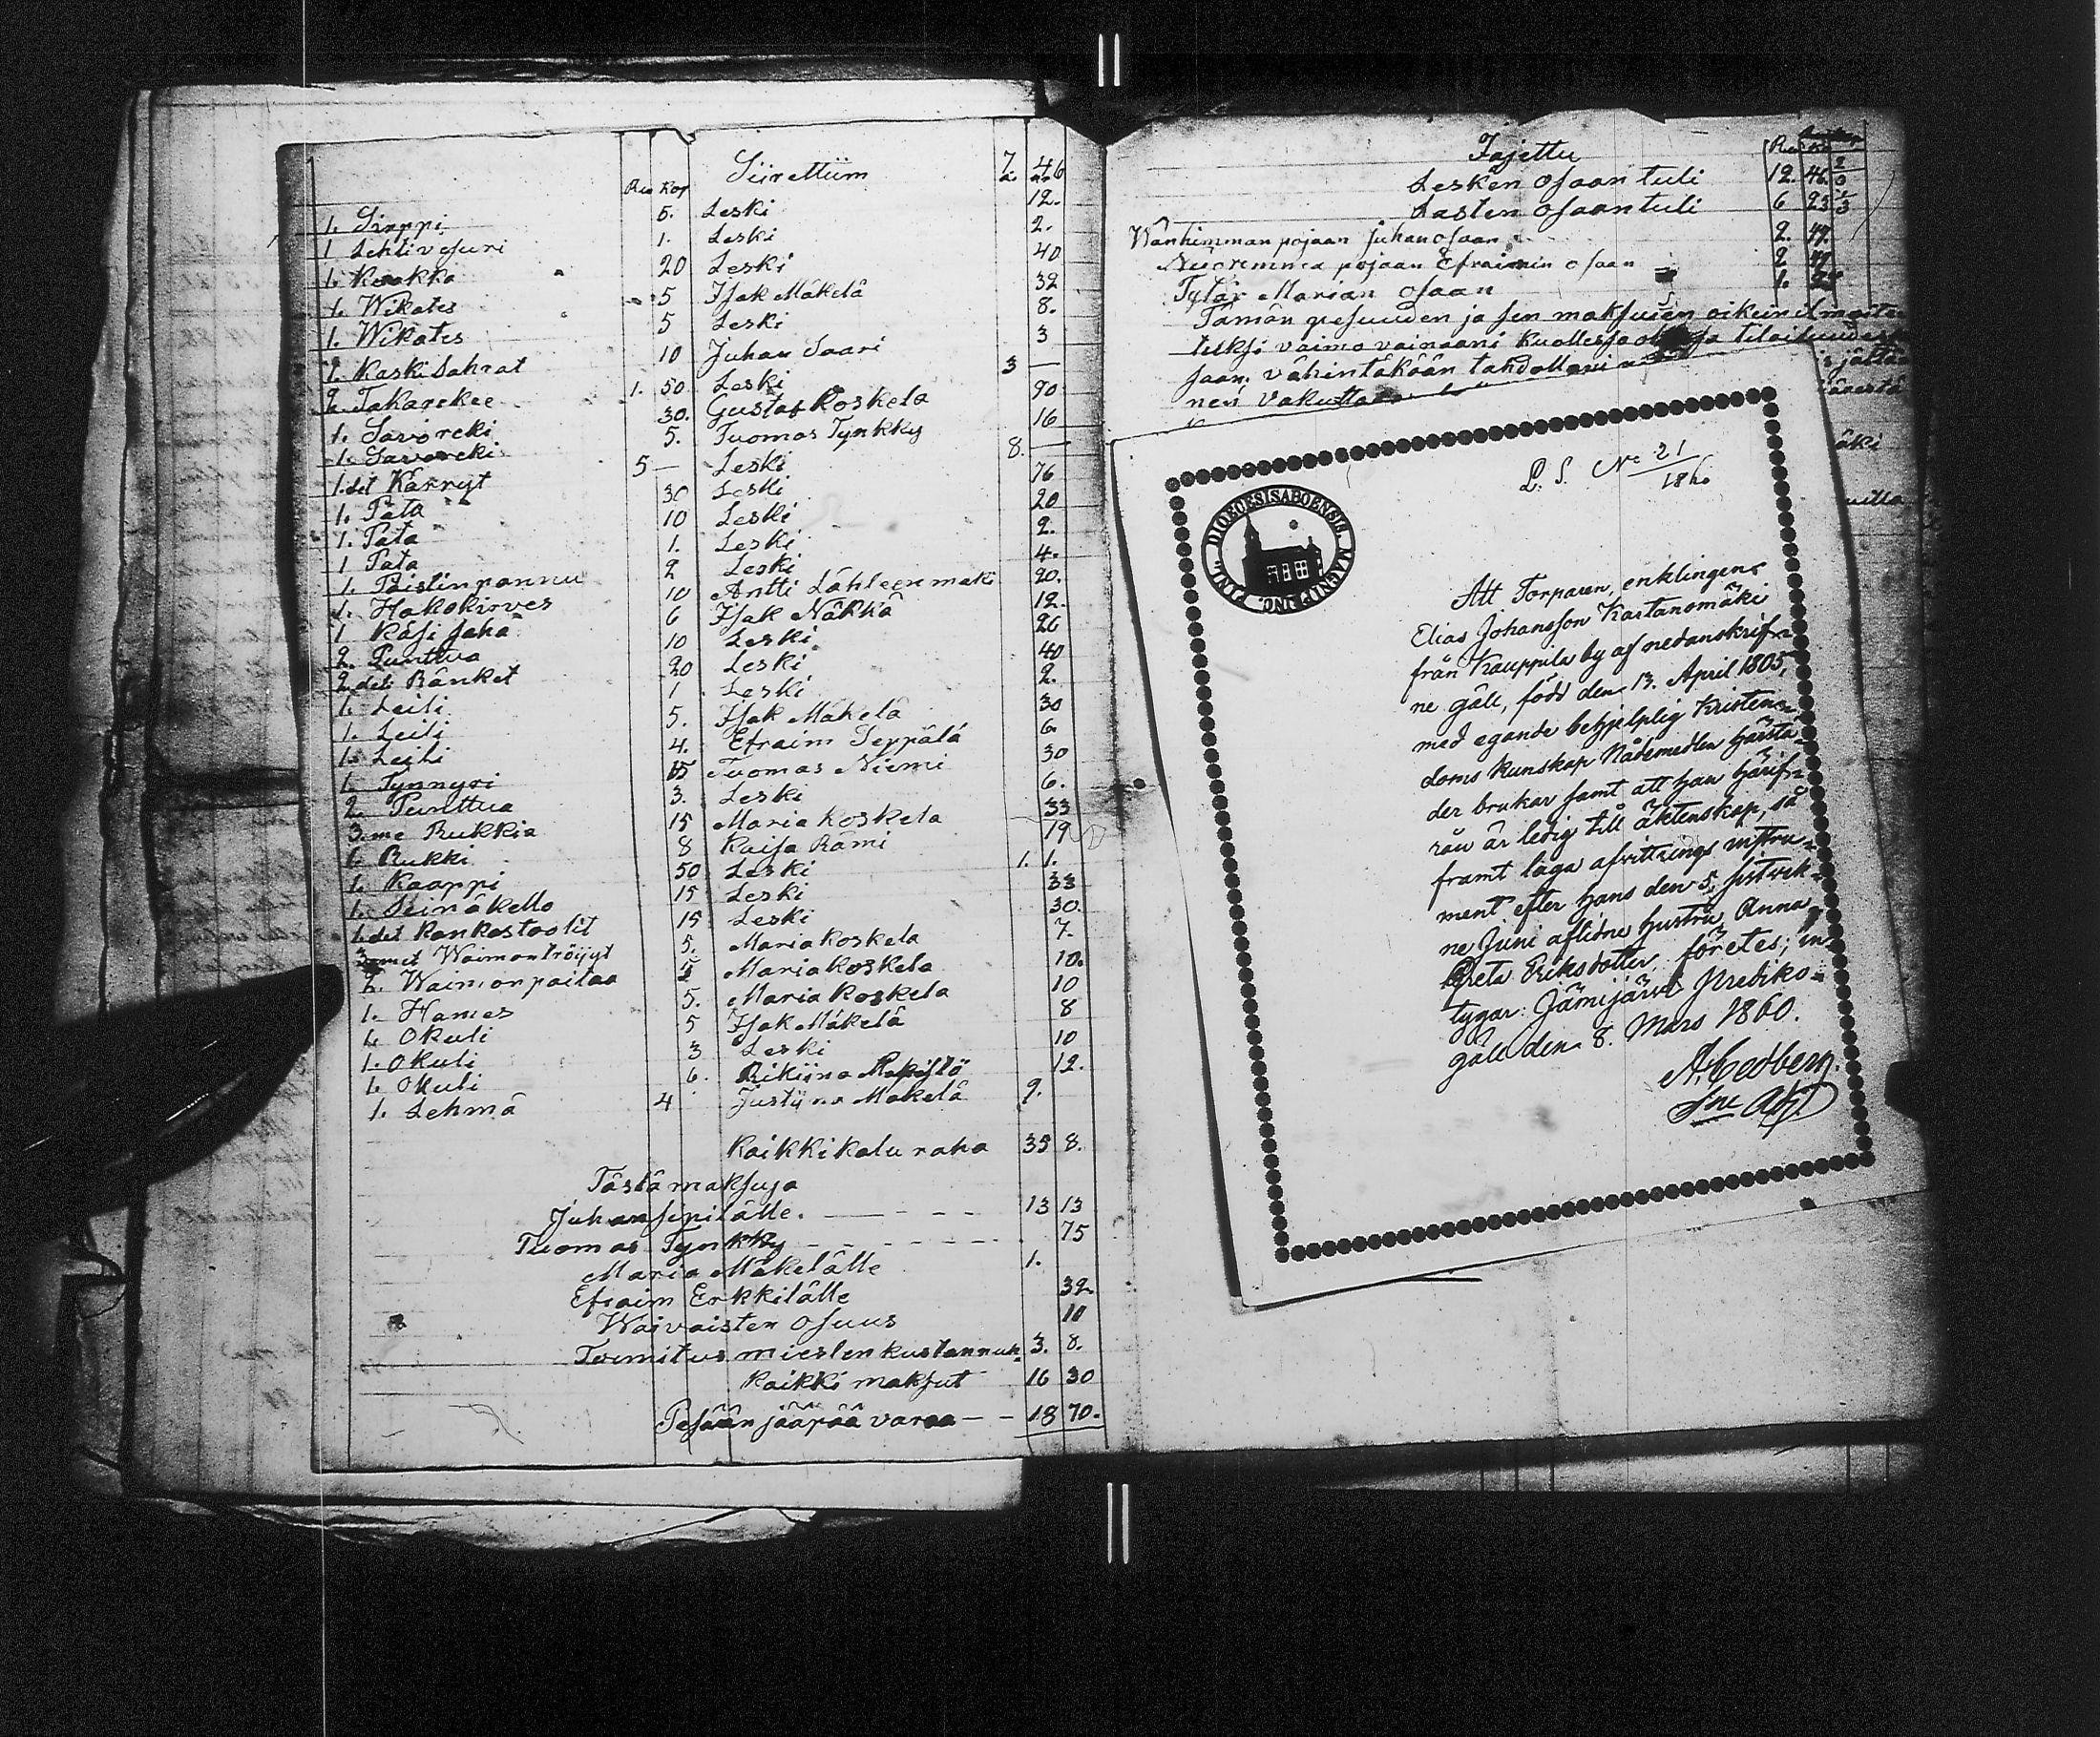 Ru Kop Siirettiim 7 46
1. Sirppi 5. Leski 12.
1 Lehtivesuri 1. Leski 2.
1. Kuokka 20 Leski 40
1. Wikates 5 Isak Mäkelä 32
1. Wikates 5 Leski 8.
2. Kaski Sahrat 10 Juhan Saari 3
2. Takarekee 1. 50 Leski 3 —
1. Savioreki 30. Gustaf Koskela 90
1. Savoreki 5. Tuomas Tynkky 16
1. det Kärryt 5 — Leski 8. —
1. Pata 30 Leski 76
1. Pata 10 Leski 20
1 Pata 1. Leski 2.
1. Paistinpannu 2 Leski 4.
1. Hakokirves 10 Antti Lähteenmäki 20.
1 Käsi saha 6 Isak Näkkä 12.
2. Punttua 10 Leski 26
2. det Ränket 20 Leski 40
1. Leili 1 Leski 2.
1. Leili 5. Isak Mäkelä 30
1. Leili 4. Efraim Seppälä 6.
1. Tynnyri 15 Tuomas Niemi 30
2. Punttua 3. Leski 6.
3. me Rukkia 15 Maria Koskela 33
1. Rukki 8 Kaisa Rämi 19
1. Kaappi 50 Leski 1. 1.
1. Seinäkello 15 Leski 33
1. det Kankastoolit 15 Leski 30.
3 met Waimontröijyt 5. Maria Koskela 7.
2. Waimonpaitaa Maria Koskela 10.
1. Hames 5. Maria Koskela 10
1. Okuli 5 Isak Mäkelä 8
1. Okuli 3 Leski 10
1. Okuli 6. Rikiina Mapistö 12.
1. Lehmä 4 Justiina Makelä 9.
Kaikki kalu raha 35 8.
Tästä maksuja
Juhan sipilälle. — - - - 13 13
Tuomas Tynkky - - - - - - 75
Maria Mäkelälle 1.
Efraim Erkkilälle 32
Waivaisten osuus 10
Toimitus miesten kustannuk. 3. 8.
Kaikki maksut 16 30
Pesään jääpää varaa — - 18 70.
Jajettu
Lesken osaan tuli 12. 46.
Lasten osaan tuli 6 23
Wanhimman pojaan Juhan osaan 2. 49.
Nuoremma pojaan Efraimin osaan 2
Tytär Marian osaan 1.
Tämän pesuuden ja sen maksuien oikein ilmoite
tuksi vaimo vainaani kuollessa tilaisuudes
saan; vähintäkään tahdottani
nesi vakutta
L. S. No 21
1860
FINL. DIOECESIS ABOENSIS MAGNI DUC.
Att Torparen, enklingen
Elias Johansson Kastanomäki
från Kauppila by af nedanskrif=
ne gäll, född den 13. April 1805,
med egande behjelplig Kristen=
doms Kunskap Nådemedlen härstä=
der brukar samt att han härif=
rån är ledig till äktenskap, så
framt laga afvittrings instru=
ment efter hans den 5. sistvek=
ne Juni aflidne hustru Anna
Greta Eriksdotter företes; in=
tygar: Jämijärvi Prediko=
gäll den 8. Mars 1860.
A. Cedberg.